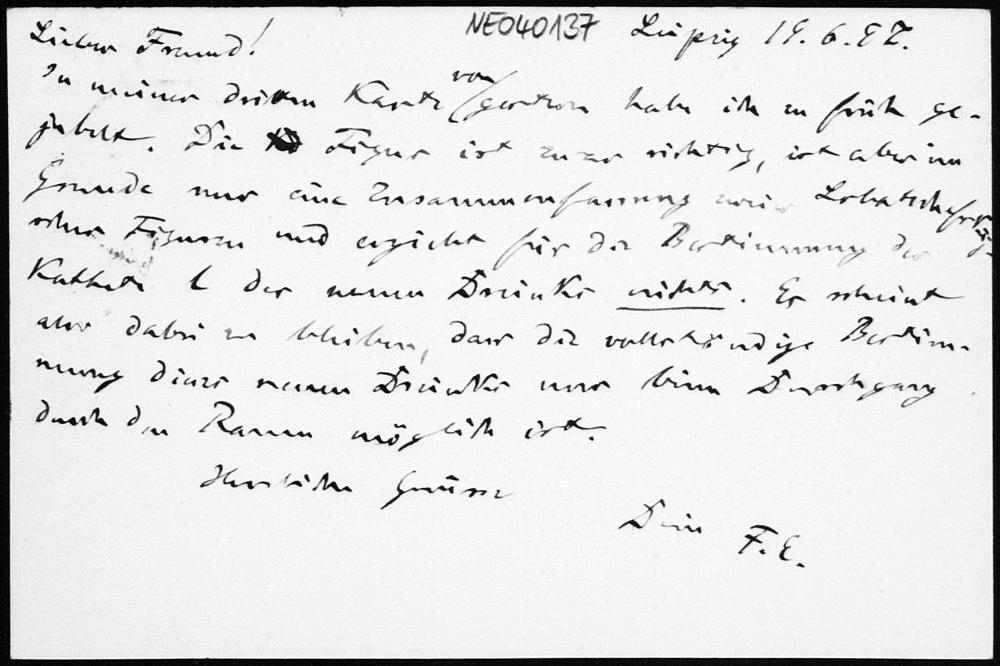 NE040137 Leipzig 19. 6. 97.
Lieber Freund!
In meiner dritten Karte von gestern habe ich zu früh ge-
jubelt. Die Figur ist zwar richtig, ist aber im
Grunde nur eine Zusammenfassung zweier Lobatschefskij-
scher Figuren und ergiebt für die Bestimmung der
Kathete l des neuen Dreiecks nichts. Es scheint
also dabei zu bleiben, dass die vollständige Bestim-
mung dieses neuen Dreiecks nur beim Durchgang
durch den Raum möglich ist.
Herzliche Grüsse
Dein F. E.